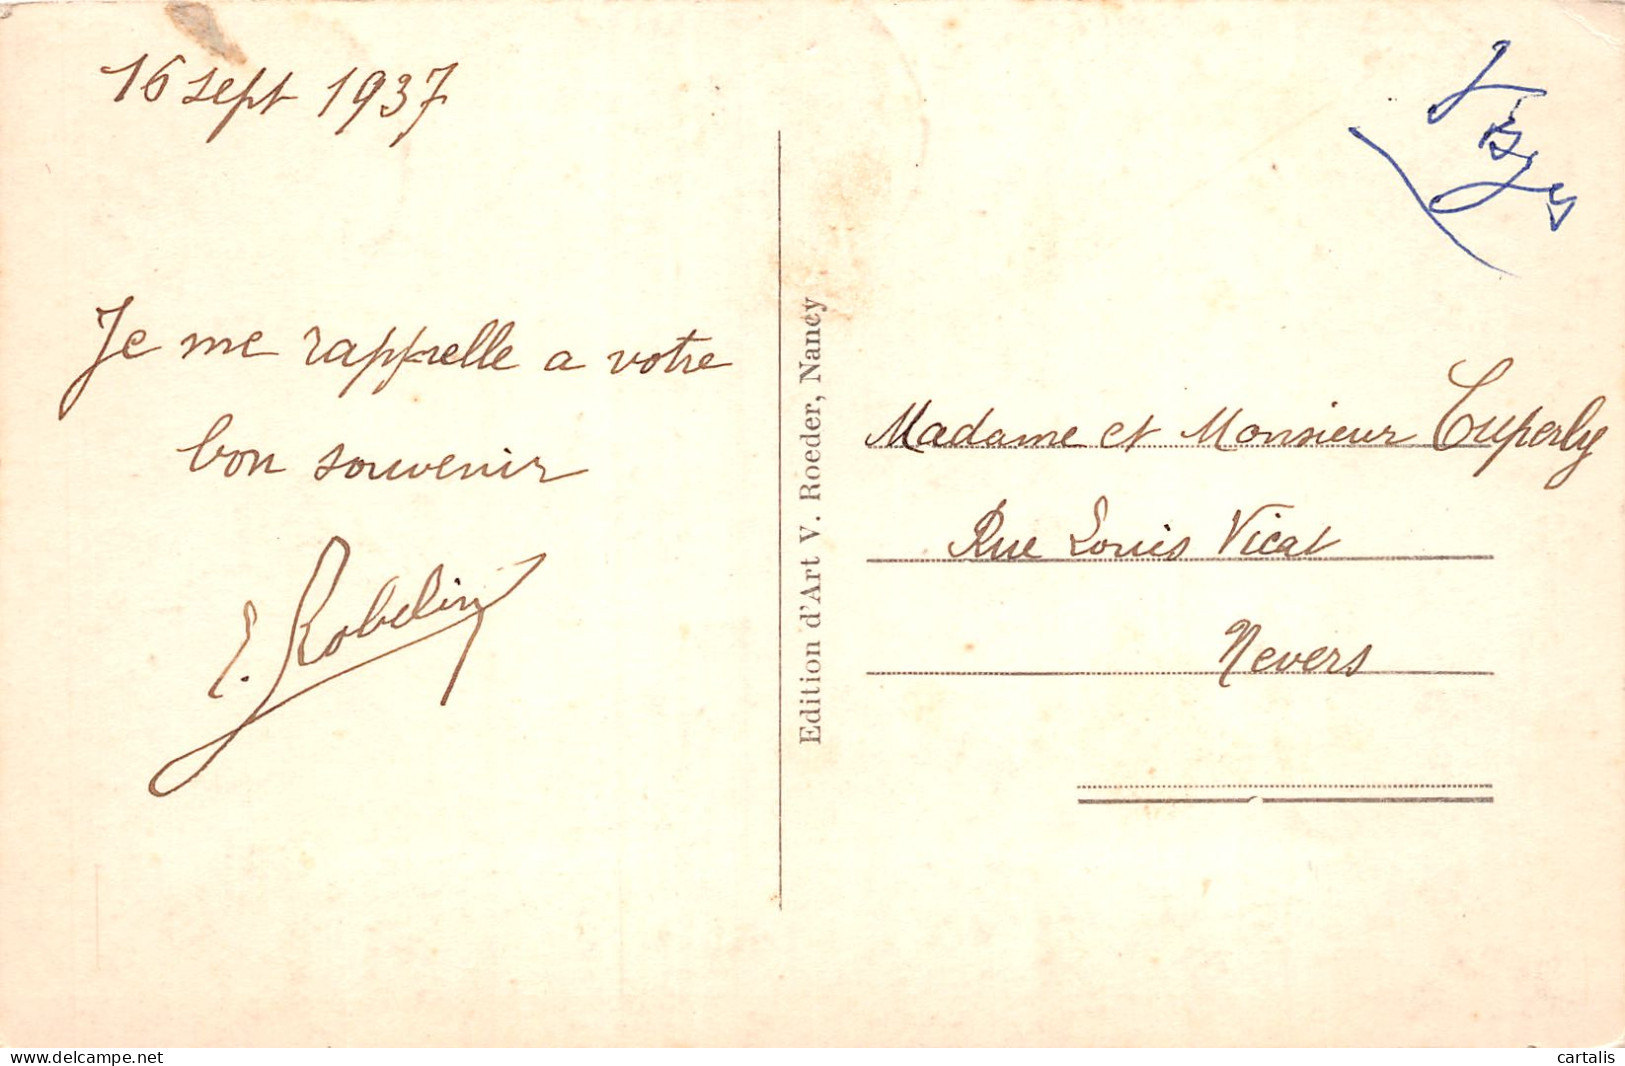 16 sept 1937
Je me rappelle a votre
bon souvenir
E. Robelin
Edition d'Art V. Roeder, Nancy
Madame et Monsieur Cuperly
Rue Louis Vicat
Nevers
www.delcampe.net
cartalis